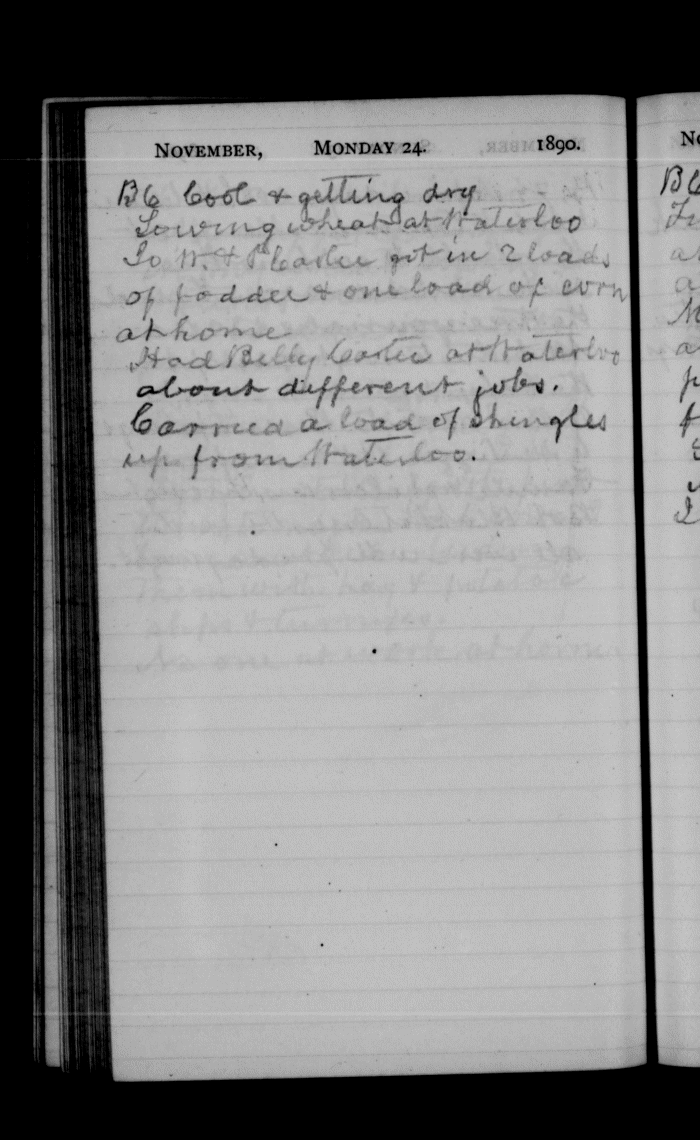 NOVEMBER, MONDAY 24. 1890.
BC Cool & getting dry
Sowing wheat at Waterloo
Jo W. & P Carter got in 2 loads
of fodder & one load of corn
at home.
Had Billy Carter at Waterloo
about different jobs.
Carried a load of shingles
up from Waterloo.